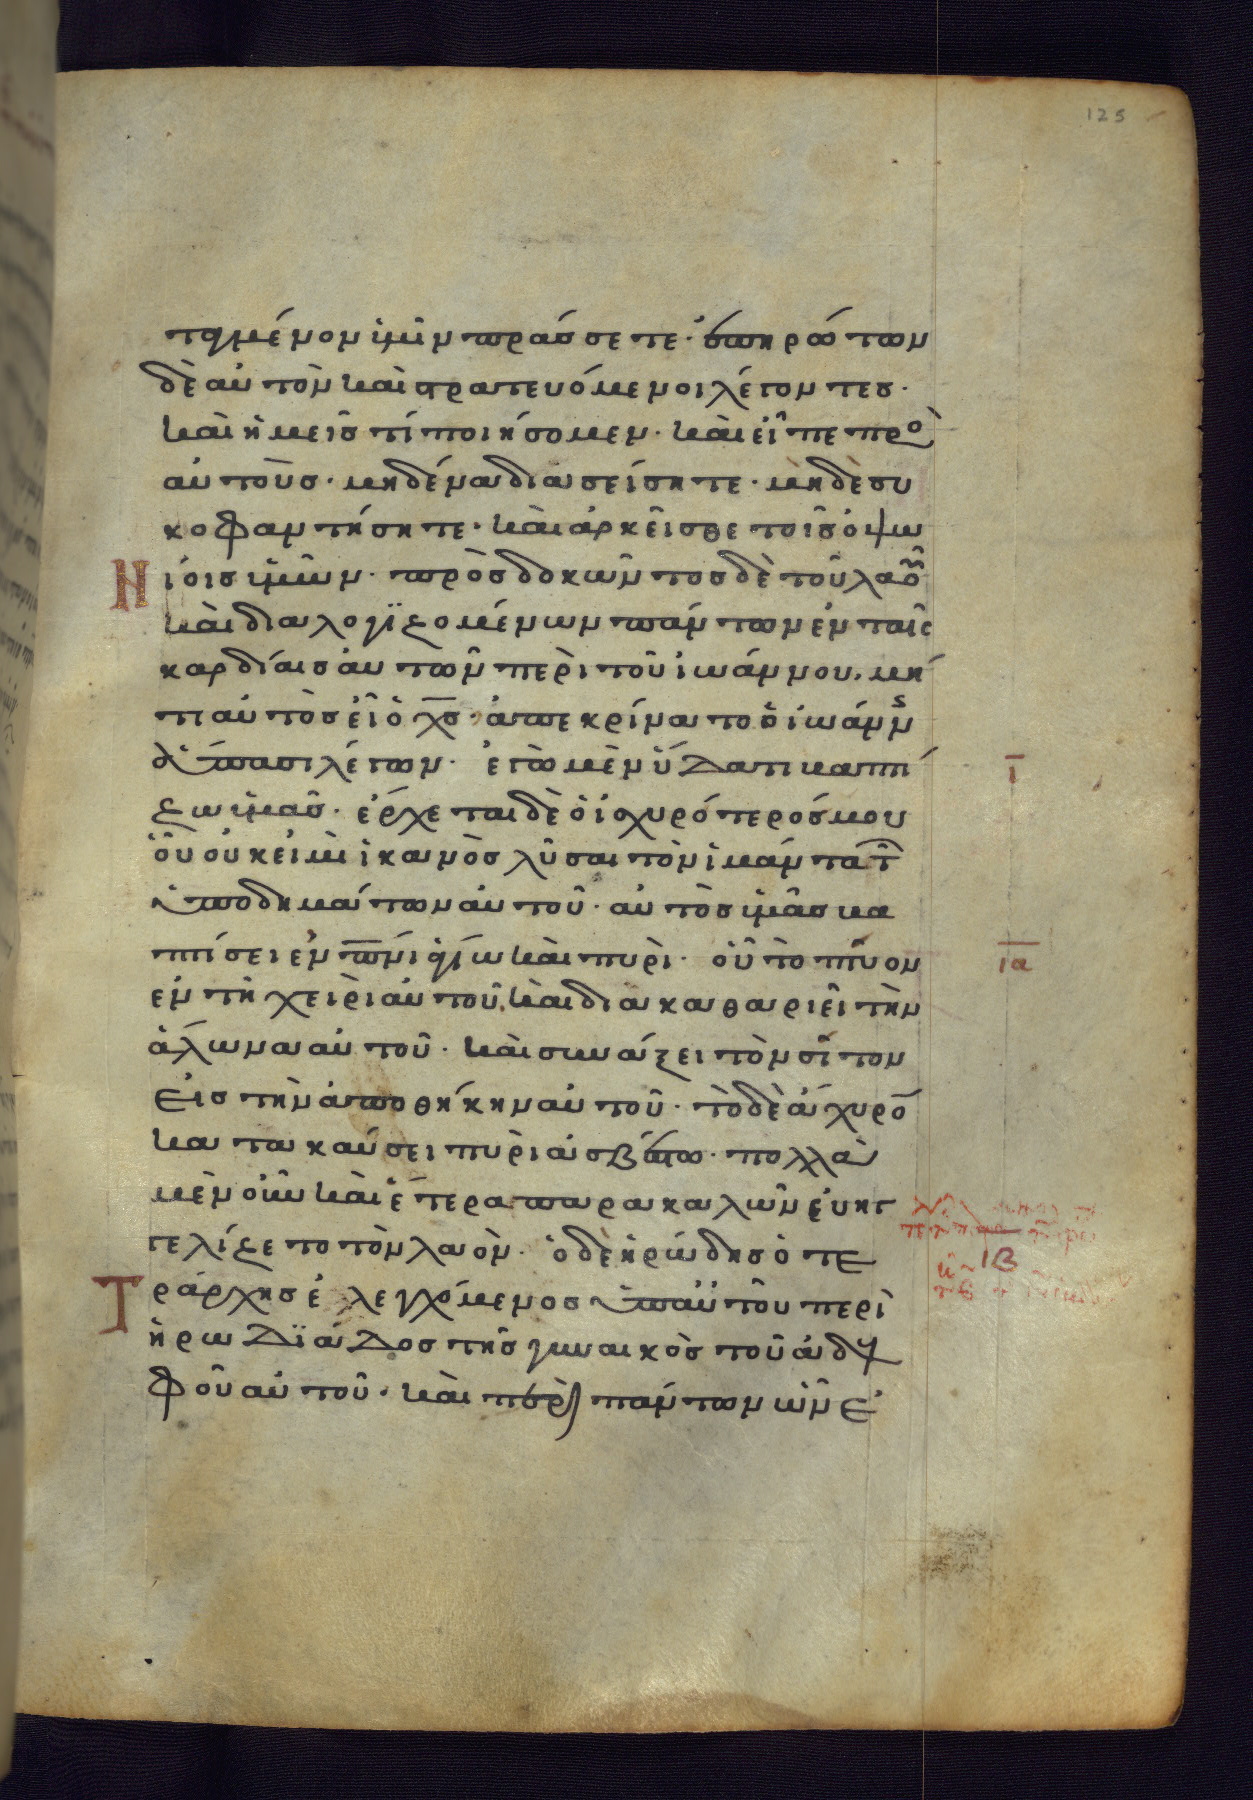 125
ταγμένον ὑμῖν πράσσετε· ἐπηρώτων
δὲ αὐτὸν καὶ στρατευόμενοι λέγοντες·
καὶ ἡμεῖς τί ποιήσομεν· καὶ εἶπε πρὸ
αὐτοὺς· μηδένα διασείσητε· μηδὲ συ
κοφαντήσητε· καὶ ἀρκεῖσθε τοῖς ὀψω
νίοις ὑμῶν· προσδοκῶντος δὲ τοῦ λαοῦ
καὶ διαλογϊζομένων πάντων ἐν ταῖς
καρδίαις αὐτῶν περὶ τοῦ ἰωάννου, μή
τι αὐτὸς εἶ ὁ χ̅ς̅· ἀπεκρίνατο ὁ ἰωάνν
ἅπασι λέγων· ἐγὼ μὲν ὕδατι βαπτί
ζω ὑμᾶς· ἔρχεται δὲ ὁ ἰσχυρότερός μου
οὗ οὐκ εἰμὶ ἱκανὸς λῦσαι τὸν ἱμάντα τ
ὑποδημάτων αὐτοῦ· αὐτὸς ὑμᾶς βα
πτίσει ἐν π̅ν̅ι ἁγίω καὶ πυρὶ· οὗ τὸ πτύον
ἐν τῆ χειρὶ αὐτοῦ, καὶ διακαθαριεῖ τὴν
ἅλωνα αὐτοῦ· καὶ συνάξει τὸν σῖτον
εἰς τὴν ἀποθήκην αὐτοῦ· τὸ δὲ ἄχυρο
κατακαύσει πυρὶ ἀσβέστω· πολλὰ
μὲν οὖν καὶ ἕτερα παρακαλῶν εὐηγ
γελίζετο τὸν λαὸν· ὁ δὲ ἡρώδης ὁ τε
τράρχης ἐλεγχόμενος ὑπ αὐτοῦ περὶ
ἡρωδϊάδος τῆς γυναικὸς τοῦ ἀδελ
φοῦ αὐτοῦ· καὶ περὶ πάντων ὧν ἐ
ι̅
ι̅α̅
ιβ